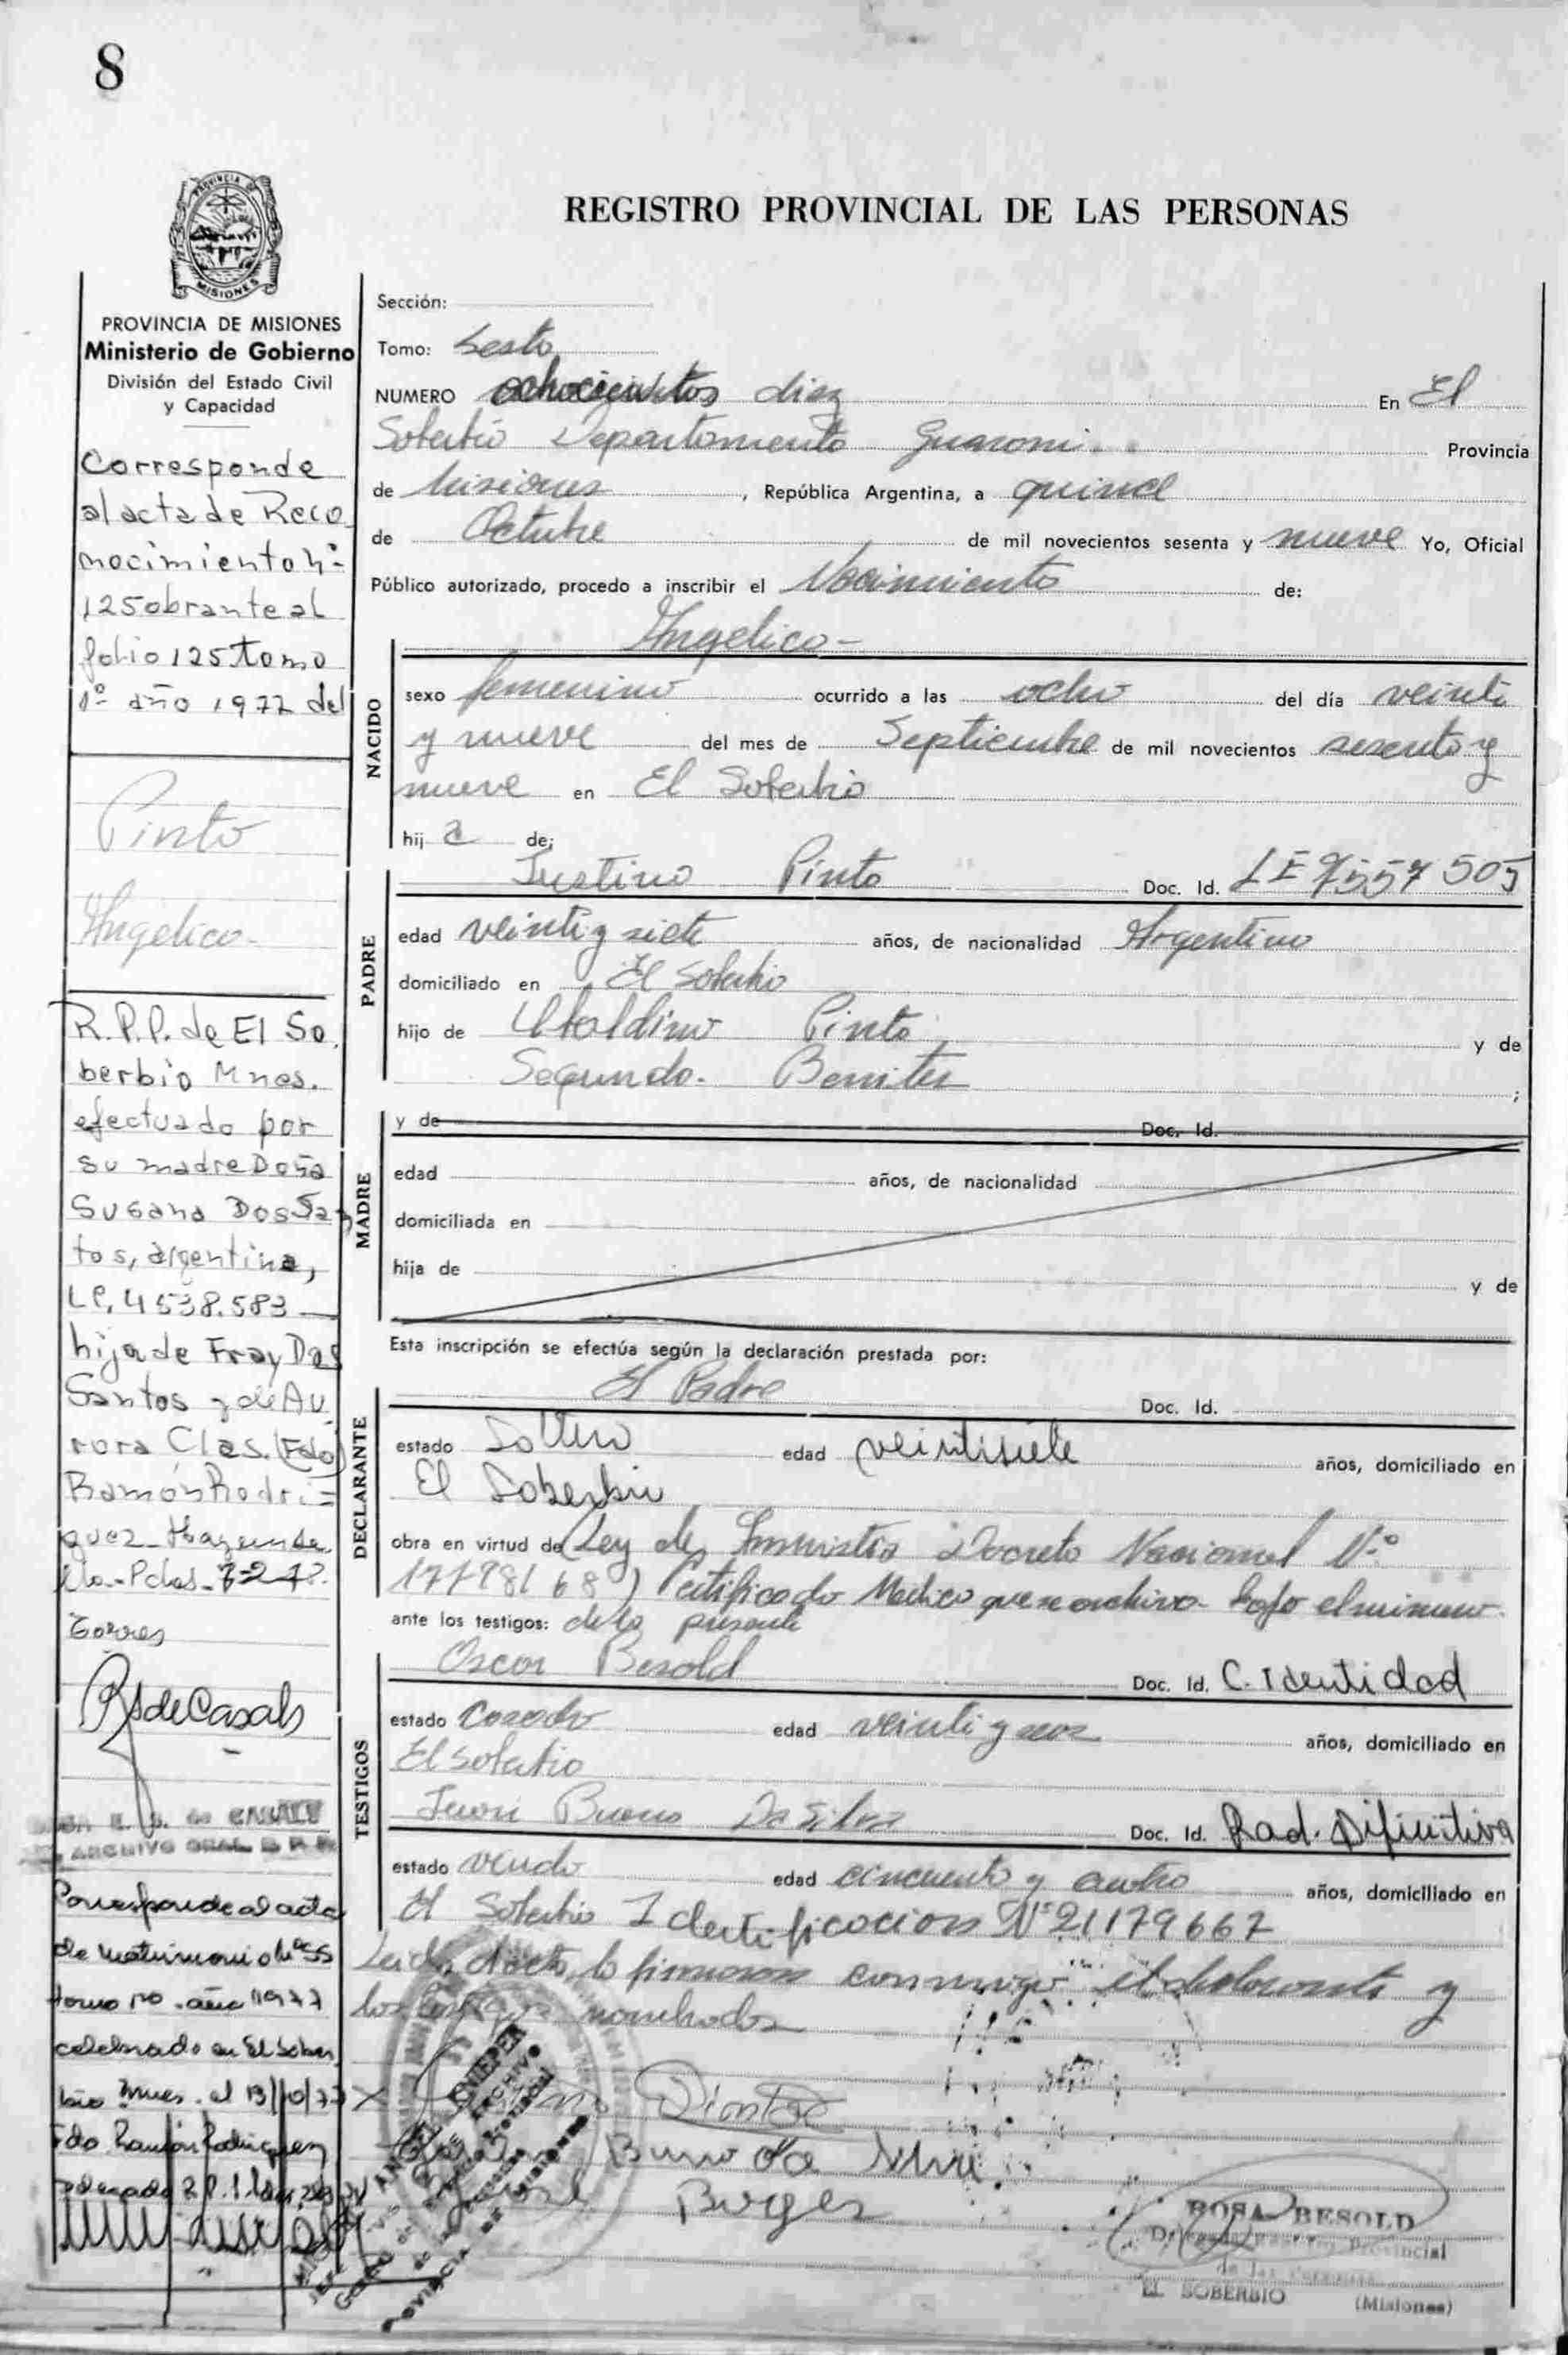 8
PROVINCIA DE
MISIONES
REGISTRO PROVINCIAL DE LAS PERSONAS
PROVINCIA DE MISIONES
Ministerio de Gobierno
División del Estado Civil
y Capacidad
Corresponde
al acta de Reco
nocimiento Nº
125 obrante al
folio 125 tomo
1º año 1977 del
Pinto
Angelica-
R.P.P. de El So
berbio Mnes.
efectuado por
su madre Doña
Susana Dos San
tos, argentina,
LC. 4538.583
hija de Fray Dos
Santos y de Au
rora Clas. (Fdo)
Ramón Rodri=
guez
Pdas
Torres
RSdeCasals
ARCHIVO GRAL
Corresponde al acta
de matrimonio Nº 55
tomo 1º año 1977
celebrado en El Sober
bio Mnes. el 13/10/77
Fdo. Ramón Rodriguez
Sección:
Tomo: Sesto
NUMERO ochocientos diez En El
Soberbio Departamento Guarani Provincia
de Misiones, República Argentina, a quince
de Octubre de mil novecientos sesenta y nueve Yo, Oficial
Público autorizado, procedo a inscribir el Nacimiento de:
Angelica-
NACIDO
sexo femenino ocurrido a las ocho del día veinti
y nueve del mes de Septiembre de mil novecientos sesenta y
nueve en El Soberbio
hij a de;
Justino Pinto Doc. Id. LE 7557505
PADRE
edad veinti y siete años, de nacionalidad Argentino
domiciliado en El Soberbio
hijo de Ubaldino Pinto y de
Segunda. Benitez ;
MADRE
y de Doc. Id.
edad años, de nacionalidad
domiciliada en
hija de y de
Esta inscripción se efectúa según la declaración prestada por:
El Padre Doc. Id.
DECLARANTE
estado Soltero edad veintisiete años, domiciliado en
El Soberbio
obra en virtud de (Ley de Amnistia Decreto Nacional Nº
17798/68) Certificado Medico que se archiva bajo el numero
ante los testigos: de la presente
TESTIGOS
Oscar Besold Doc. Id. C. Identidad
estado Casado edad veinti y seis años, domiciliado en
El Soberbio
Juan Bueno Da Silva Doc. Id. Rad. Difinitiva
estado viudo edad cincuenta y cuatro años, domiciliado en
El Soberbio Identificacion Nº 21179667
Leida el acta, lo firmaron conmigo el declarante y
los testigos nombrados
Pinto
Bueno da Silva
Borges
ARCHIVO
PROVINCIA DE MISIONES
ROSA BESOLD
Provincial
de las Personas
EL SOBERBIO (Misiones)